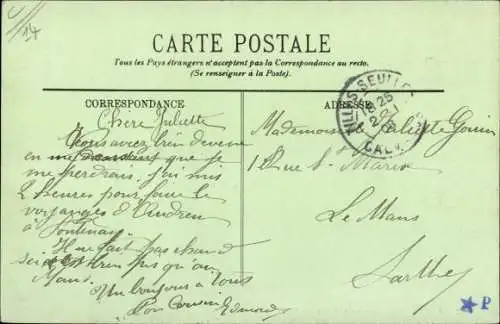 14
CARTE POSTALE
Tous les Pays étrangers n'acceptent pas la Correspondance au recto.
(Se renseigner à la Poste)
CORRESPONDANCE
Chère Juliette
Vous aviez bien deviné
en me que je
me perdrais, j'ai mis
2 heures pour faire le
voyage d'
à Fontenay.
Il ne fait pas chaud
ici bien pis qu'au
Mans.
Un bonjour à tous
Ton Cousin Edmond
ADRESSE
Mademoiselle Juliette
1 Rue Ste Marie
Le Mans
Sarthe
SEULLES
CALV
P